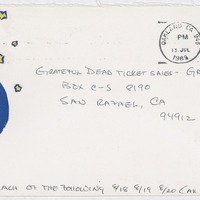 OAKLAND CA 946
PM
11 JUL
1989
GRATEFUL DEAD TICKET SALES - GR
BOX C-S 8190
SAN RAFAEL, CA
94912
EACH OF THE FOLLOWING 8/18 8/19 8/20